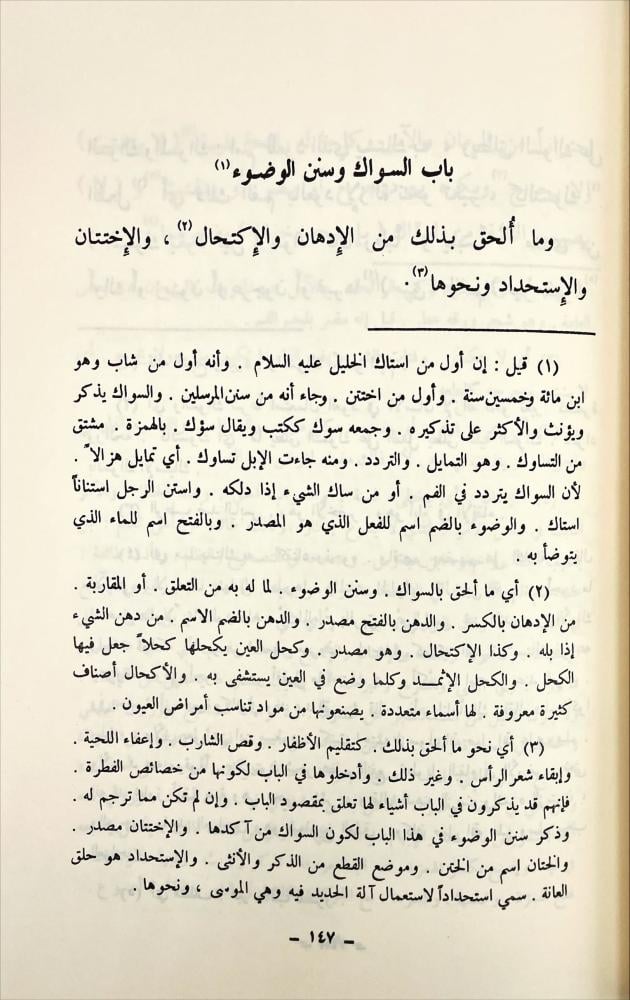 باب السواك وسنن الوضوء (١)
وما أُلحق بذلك من الإدهان والإكتحال (٢) ، والإختتان
والإستحداد ونحوها (٣) .
(١) قيل : إن أول من استاك الخليل عليه السلام . وأنه أول من شاب وهو
ابن مائة وخمسين سنة . وأول من اختتن . وجاء أنه من سنن المرسلين . والسواك يذكر
ويؤنث والأكثر على تذكيره . وجمعه سوك ككتب ويقال سؤك . بالهمزة . مشتق
من التساوك . وهو التمايل . والتردد . ومنه جاءت الإبل تساوك . أي تمايل هزالاً .
لأن السواك يتردد في الفم . أو من ساك الشيء إذا دلكه . واستن الرجل استناناً
استاك . والوضوء بالضم اسم للفعل الذي هو المصدر . وبالفتح اسم للماء الذي
يتوضأ به .
(٢) أي ما ألحق بالسواك . وسنن الوضوء . لما له به من التعلق . أو المقاربة .
من الإدهان بالكسر . والدهن بالفتح مصدر . والدهن بالضم الاسم . من دهن الشيء
إذا بله . وكذا الإكتحال . وهو مصدر . وكحل العين يكحلها كحلاً جعل فيها
الكحل . والكحل الإثمـــد وكلما وضع في العين يستشفى به . والأكحال أصناف
كثيرة معروفة . لها أسماء متعددة . يصنعونها من مواد تناسب أمراض العيون .
(٣) أي نحو ما ألحق بذلك . كتقليم الأظفار . وقص الشارب . وإعفاء اللحية .
وإبقاء شعر الرأس . وغير ذلك . وأدخلوها في الباب لكونها من خصائص الفطرة .
فإنهم قد يذكرون في الباب أشياء لها تعلق بمقصود الباب . وإن لم تكن مما ترجم له .
وذكر سنن الوضوء في هذا الباب لكون السواك من آكدها . والإختتان مصدر .
والختان اسم من الختن . وموضع القطع من الذكر والأنثى . والإستحداد هو حلق
العانة . سمي استحداداً لاستعمال آلة الحديد فيه وهي الموسى ، ونحوها .
– ١٤٧ –